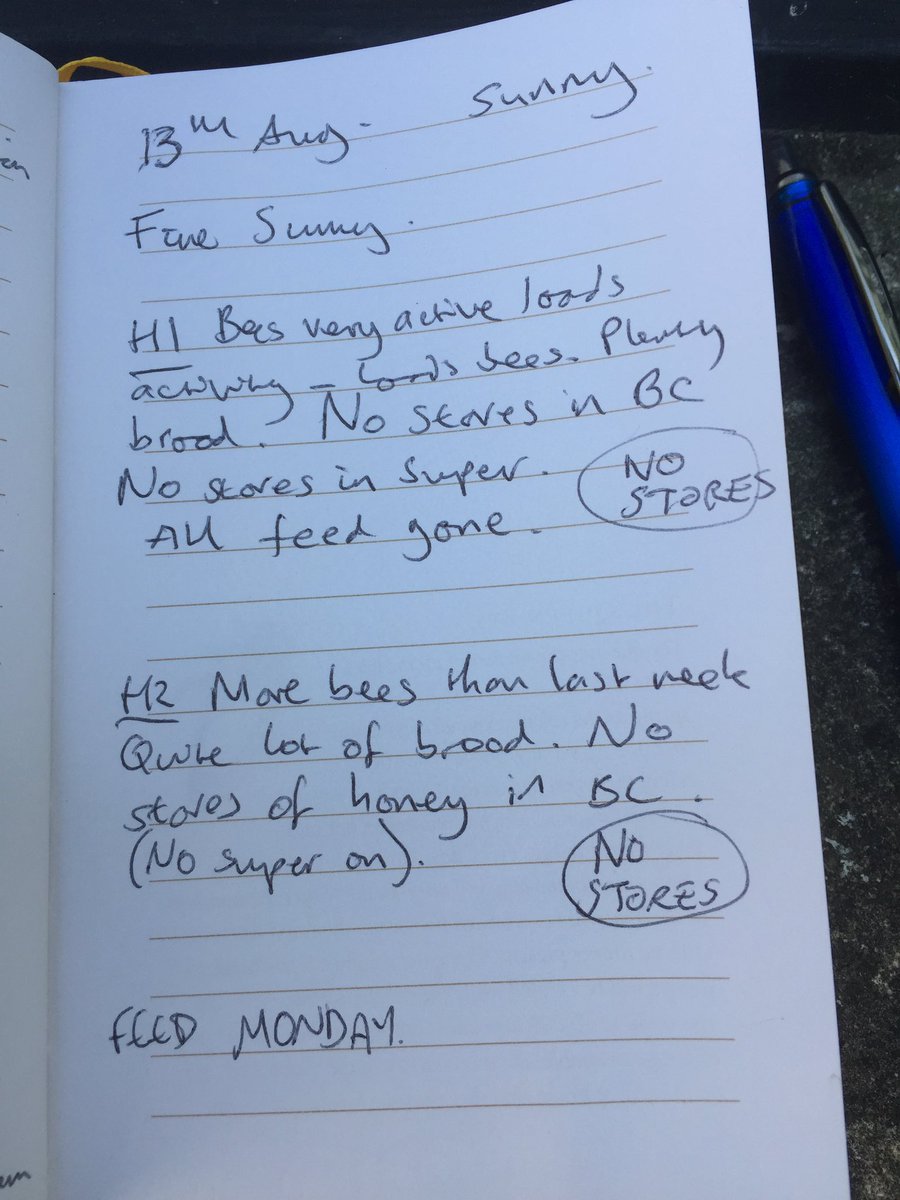 13th Aug. Sunny.
Fine Sunny.
H1 Bees very active loads
activity – Loads bees. Plenty
brood. No stores in BC
No stores in super. NO
STORES
All feed gone.
H2 More bees than last week
Quite lot of brood. No
stores of honey in BC.
(No super on). NO
STORES
FEED MONDAY.